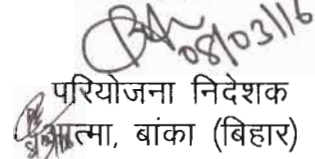 08/03/16
परियोजना निदेशक
आत्मा, बांका (बिहार)